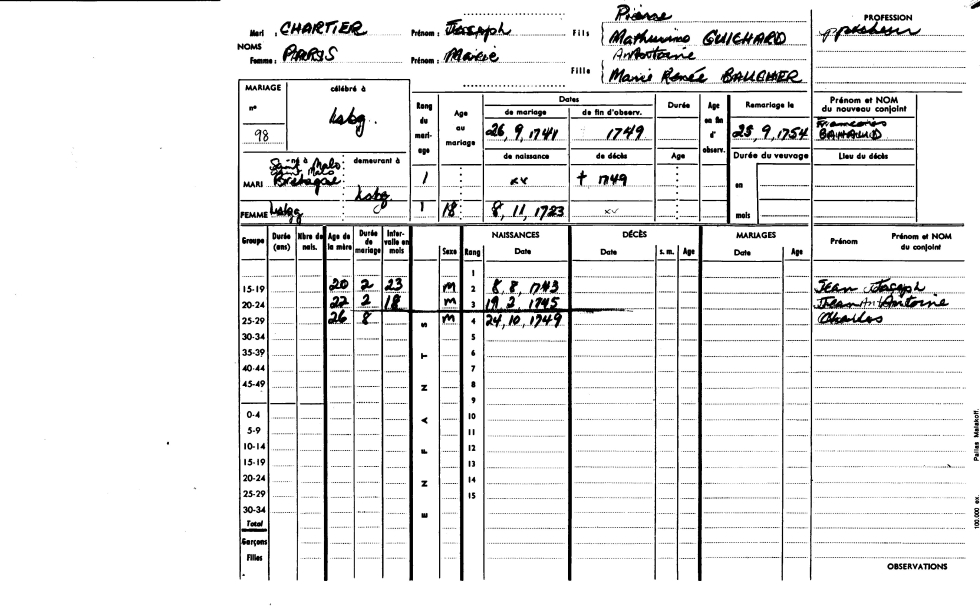 Mari : CHARTIER Prénom : Joseph Fils { Pierre
Mathurine GUICHARD
NOMS
Femme : PARIS Prénom : Marie Fille { Antoine
Marie Renée BAUCHER
PROFESSION
MARIAGE
n°
98
célébré à
Lsbg.
Rang du mari- age
Age au mariage
Dates
de mariage de fin d'observ.
26, 9, 1741 1749
Durée
Age en fin d' observ.
Remariage le
25, 9, 1754
Prénom et NOM du nouveau conjoint
de naissance de décès Age
Durée du veuvage
Lieu du décès
né à demeurant à
MARI Saint Malo Bretagne Lsbg 1 xx + 1749
en
FEMME Lsbg 1 18 8, 11, 1723 xx
mois
Groupe Durée (ans) Nbre de nais. Age de la mère Durée de mariage Inter- valle en mois Sexe Rang
NAISSANCES Date
DÉCÈS Date s. m. Age
MARIAGES Date Age
Prénom Prénom et NOM du conjoint
1
15-19 20 2 23 m 2 8. 8, 1743 Jean Joseph
20-24 22 2 18 m 3 19. 2, 1745 Antoine
25-29 26 8 S m 4 24, 10, 1749 Charles
30-34 5
35-39 T 6
40-44 7
45-49 N 8
9
0-4 A 10
5-9 11
10-14 F 12
15-19 13
20-24 N 14
25-29 15
30-34 E
Total
Garçons
Filles
OBSERVATIONS
100.000 ex. Pallas Malakoff.